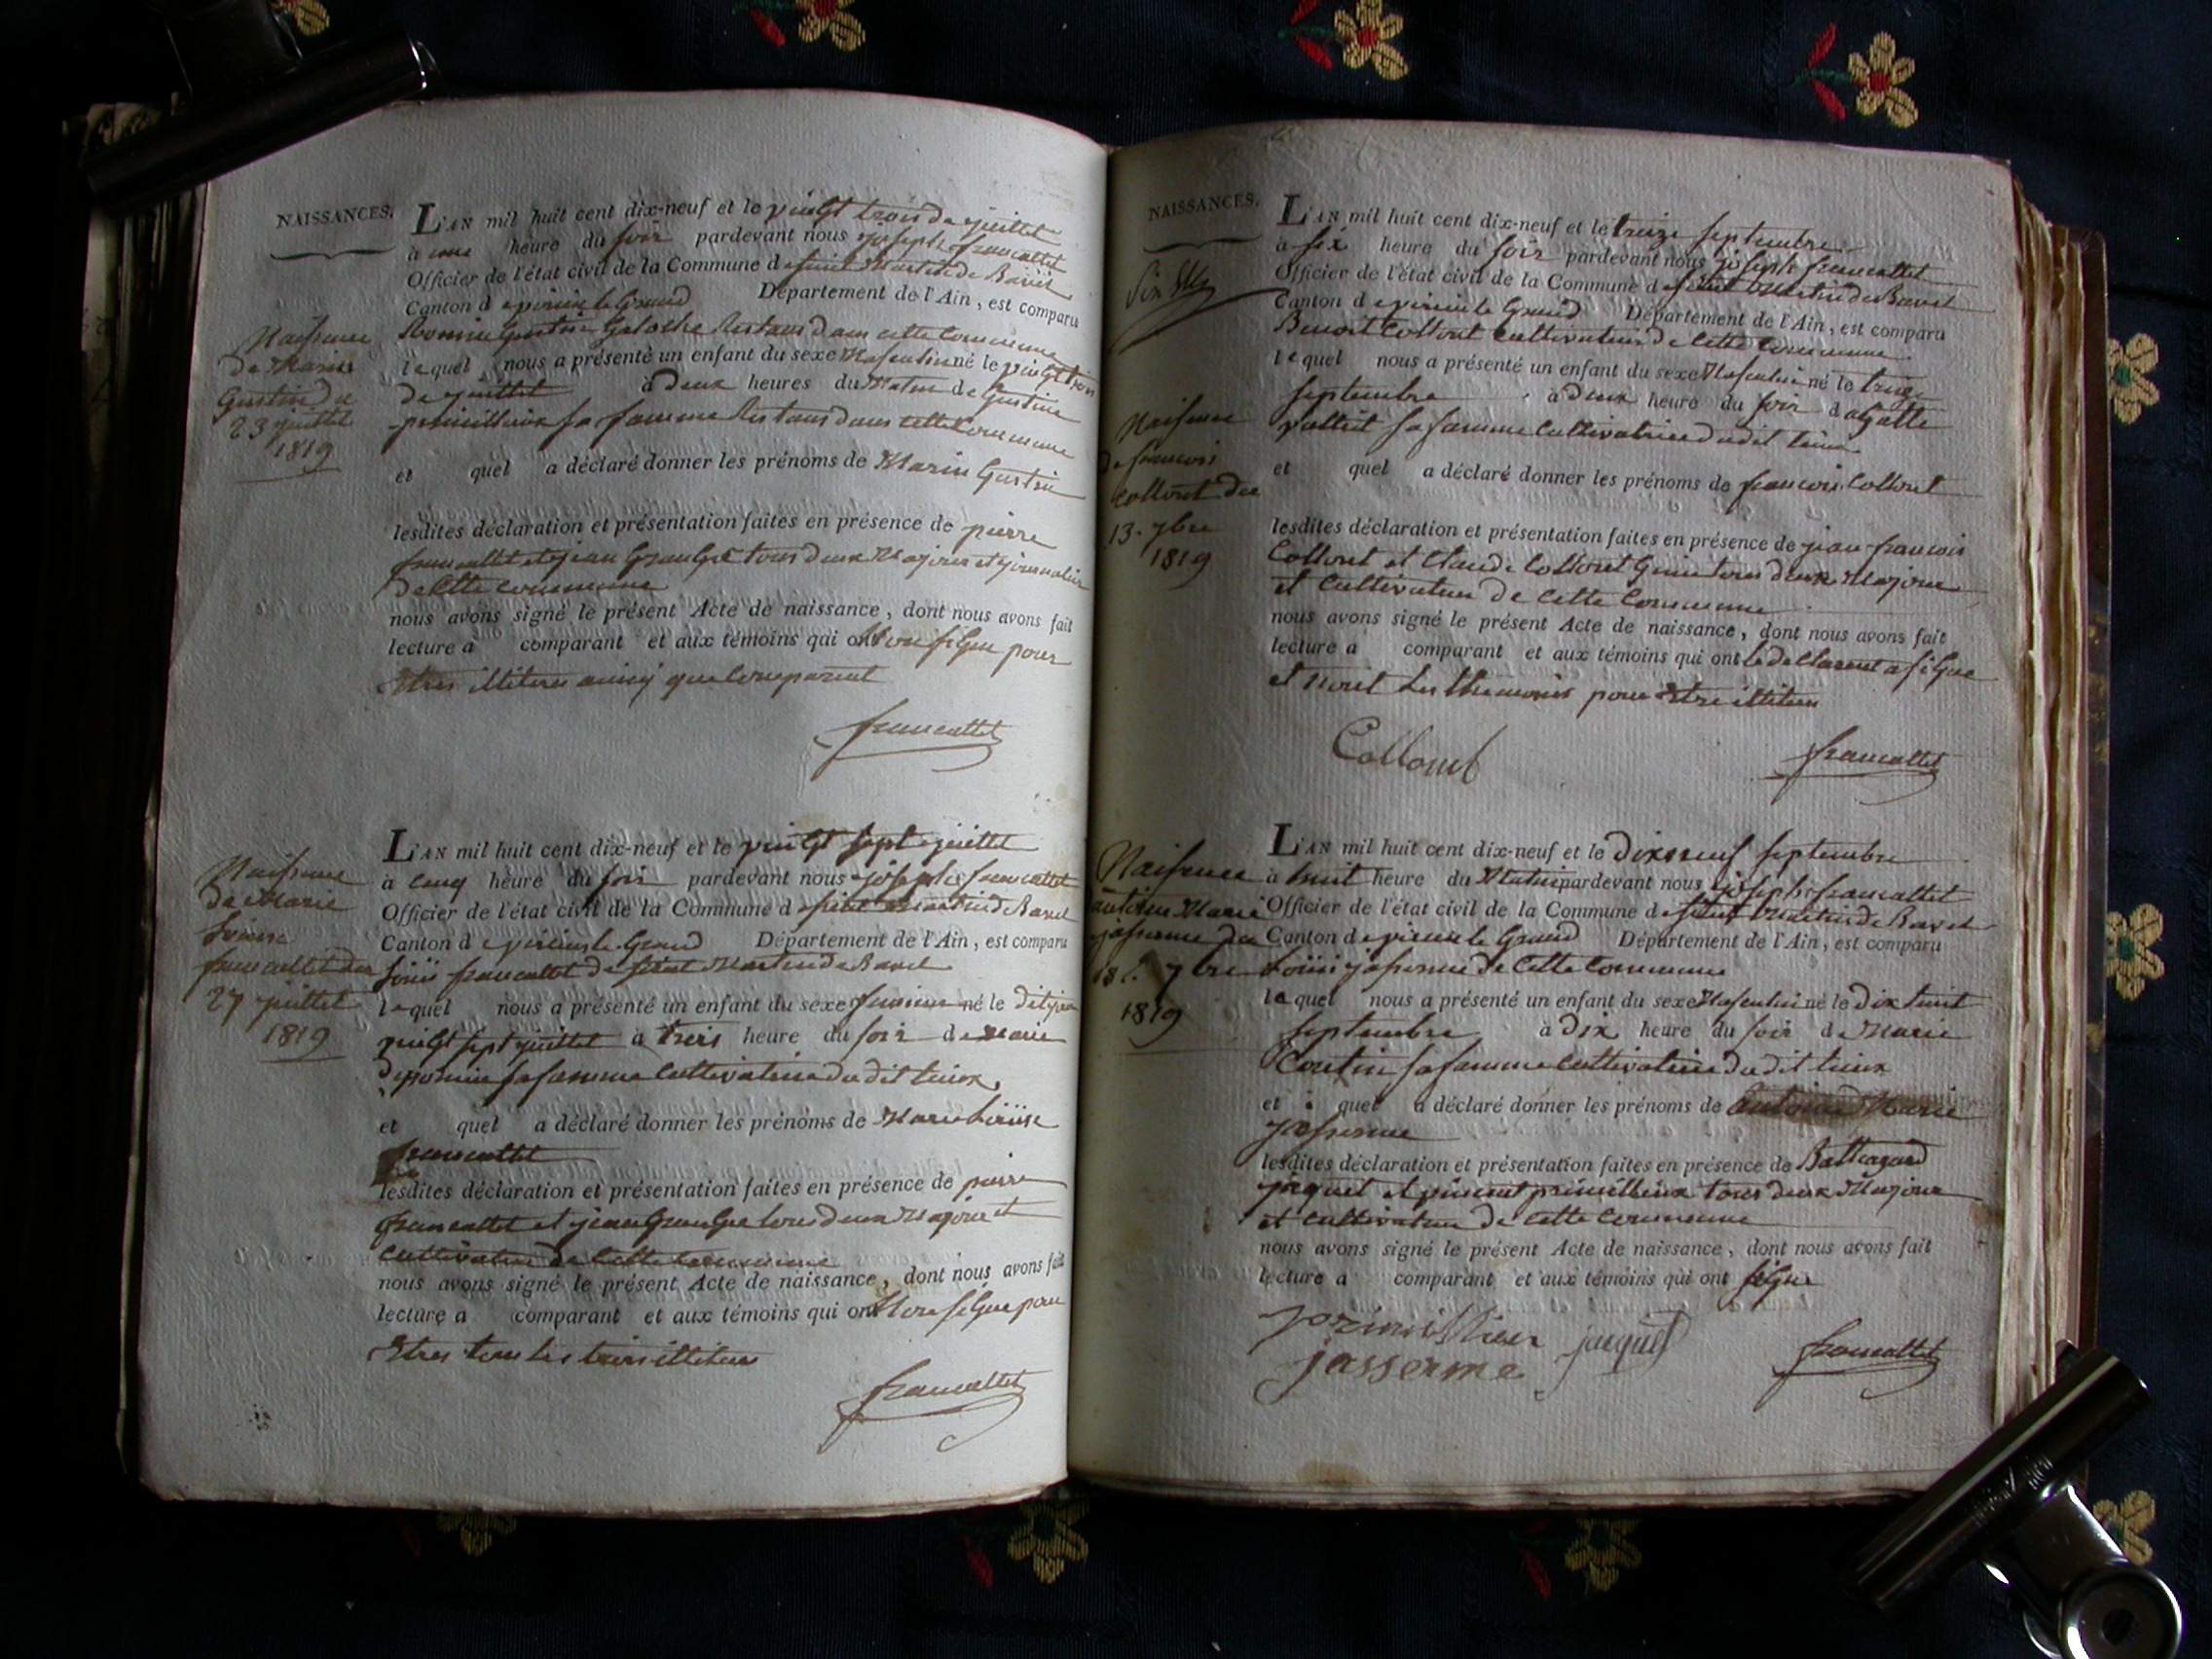 NAISSANCES.
L'AN mil huit cent dix-neuf et le vingt trois de juillet
à une heure du soir pardevant nous joseph francallet
Officier de l'état civil de la Commune de saint Martin de Bavel
Canton de virieu le Grand Département de l'Ain, est comparu
dans cette commune
lequel nous a présenté un enfant du sexe Masculin né le vingt trois
de juillet à deux heures du Matin de Gustine
sa famme dans cette Commune
et quel a déclaré donner les prénoms de Marin Gustin
lesdites déclaration et présentation faites en présence de pierre
francallet et jean tous deux Majeur et journalier
de cette commune
nous avons signé le présent Acte de naissance, dont nous avons fait
lecture a comparant et aux témoins qui ont Non signe pour
Etres illiteres que Comparant
francallet
Naissance
de Marin
Gustin du
23 juillet
1819
L'AN mil huit cent dix-neuf et le vingt sept juillet
à cinq heure du soir pardevant nous joseph francallet
Officier de l'état civil de la Commune de saint Martin de Bavel
Canton de virieu le Grand Département de l'Ain, est comparu
Loüis francallet de saint Martin de Bavel
lequel nous a présenté un enfant du sexe feminin né le dit jour
vingt sept juillet à trois heure du soir de Marie
sa famme cultivatrice du dit lieux
et quel a déclaré donner les prénoms de Marie Loüise
francallet
lesdites déclaration et présentation faites en présence de pierre
francallet et jean tous deux Majeur et
cultivateur de Cette Commune
nous avons signé le présent Acte de naissance, dont nous avons fait
lecture a comparant et aux témoins qui ont Non signe pour
Etres tous les trois illiteres
francallet
Naissance
de Marie
Loüise
francallet du
27 juillet
1819
NAISSANCES.
L'AN mil huit cent dix-neuf et le treize septembre
à six heure du soir pardevant nous joseph francallet
Officier de l'état civil de la Commune de saint Martin de Bavel
Canton de virieu le Grand Département de l'Ain, est comparu
Benoit Collont cultivateur de Cette Commune
lequel nous a présenté un enfant du sexe Masculin né le treize
septembre à deux heure du soir d agatte
sa famme cultivatrice du dit lieux
et quel a déclaré donner les prénoms de francois Collont
lesdites déclaration et présentation faites en présence de jean francois
Collont et Claude Collont tous deux Majeur
et cultivateur de Cette Commune
nous avons signé le présent Acte de naissance, dont nous avons fait
lecture a comparant et aux témoins qui ont le declarent a signe
et pour Etre illiteres
Collomb
francallet
Naissance
de francois
Collont du
13. 7bre
1819
L'AN mil huit cent dix-neuf et le dixneuf septembre
à huit heure du Matin pardevant nous joseph francallet
Officier de l'état civil de la Commune de saint Martin de Bavel
Canton de virieu le Grand Département de l'Ain, est comparu
Loüis jasserme de Cette Commune
lequel nous a présenté un enfant du sexe Masculin né le dix huit
septembre à dix heure du soir de Marie
sa famme cultivatrice du dit lieux
et quel a déclaré donner les prénoms de Antoine Marie
jasserme
lesdites déclaration et présentation faites en présence de Baltazard
jaquet et vincent primillieux tous deux Majeur
et cultivateur de Cette Commune
nous avons signé le présent Acte de naissance, dont nous avons fait
lecture a comparant et aux témoins qui ont signe
primillieux jaquet
jasserme
francallet
Naissance
antoine Marie
jasserme du
18. 7bre
1819